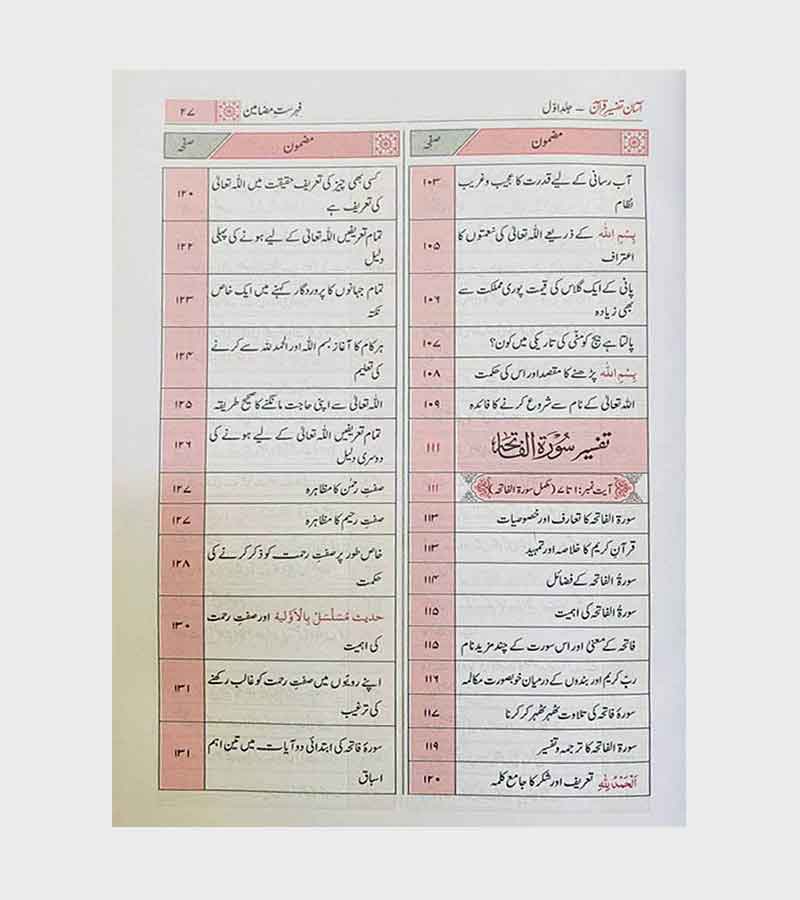 آسان تفسیر قرآن – جلد اوّل
فہرستِ مضامین
۴۷
مضمون
صفحہ
آب رسانی کے لیے قدرت کا عجیب و غریب
نظام
۱۰۳
بِسْمِ اللہ کے ذریعے اللہ تعالیٰ کی نعمتوں کا
اعتراف
۱۰۵
پانی کے ایک گلاس کی قیمت پوری مملکت سے
بھی زیادہ
۱۰۶
پالتا ہے بیج کو مٹی کی تاریکی میں کون؟
۱۰۷
بِسْمِ اللہ پڑھنے کا مقصد اور اس کی حکمت
۱۰۸
اللہ تعالیٰ کے نام سے شروع کرنے کا فائدہ
۱۰۹
تفسیر سُوْرَۃُ الفَاتِحَۃ
۱۱۱
آیت نمبر: ۱ تا ۷ (مکمل سورۃ الفاتحہ)
۱۱۱
سورۃ الفاتحہ کا تعارف اور خصوصیات
۱۱۳
قرآنِ کریم کا خلاصہ اور تمہید
۱۱۳
سورۃُ الفاتحہ کے فضائل
۱۱۴
سورۃُ الفاتحہ کی اہمیت
۱۱۵
فاتحہ کے معنیٰ اور اس سورت کے چند مزید نام
۱۱۵
ربِّ کریم اور بندوں کے درمیان خوبصورت مکالمہ
۱۱۶
سورۂ فاتحہ کی تلاوت ٹھہر ٹھہر کر کرنا
۱۱۷
سورۃ الفاتحہ کا ترجمہ و تفسیر
۱۱۹
اَلْحَمْدُ لِلّٰہِ تعریف اور شکر کا جامع کلمہ
۱۲۰
مضمون
صفحہ
کسی بھی چیز کی تعریف حقیقت میں اللہ تعالیٰ
کی تعریف ہے
۱۲۰
تمام تعریفیں اللہ تعالیٰ کے لیے ہونے کی پہلی
دلیل
۱۲۲
تمام جہانوں کا پروردگار کہنے میں ایک خاص
نکتہ
۱۲۳
ہر کام کا آغاز بسم اللہ اور الحمد للہ سے کرنے
کی تعلیم
۱۲۴
اللہ تعالیٰ سے اپنی حاجت مانگنے کا صحیح طریقہ
۱۲۵
تمام تعریفیں اللہ تعالیٰ کے لیے ہونے کی
دوسری دلیل
۱۲۶
صفتِ رحمٰن کا مظاہرہ
۱۲۷
صفتِ رحیم کا مظاہرہ
۱۲۷
خاص طور پر صفتِ رحمت کو ذکر کرنے کی
حکمت
۱۲۸
حدیث مُسَلْسَلْ بِالْاَوَّلِیہ اور صفتِ رحمت
کی اہمیت
۱۳۰
اپنے رویّوں میں صفتِ رحمت کو غالب رکھنے
کی ترغیب
۱۳۱
سورۂ فاتحہ کی ابتدائی دو آیات میں تین اہم
اسباق
۱۳۱